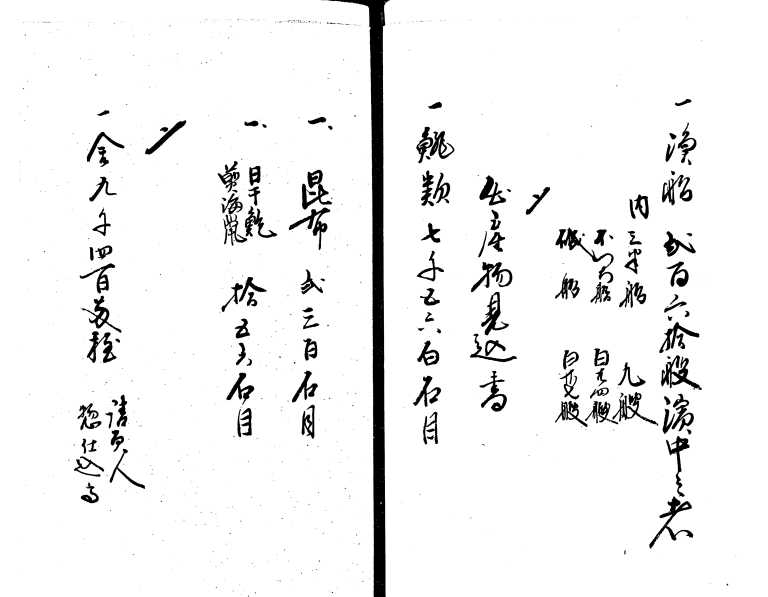 一 漁船 弐百六拾艘 濱中之者
内 三半船 九艘
船 百四艘
磯船 百艘
出産物見込高
一 鯡類 七千五六百石目
一 昆布 弐三百石目
一 日干鮑 煎海鼠 拾五六石目
一 金九千四百両程
請負人
惣仕込高